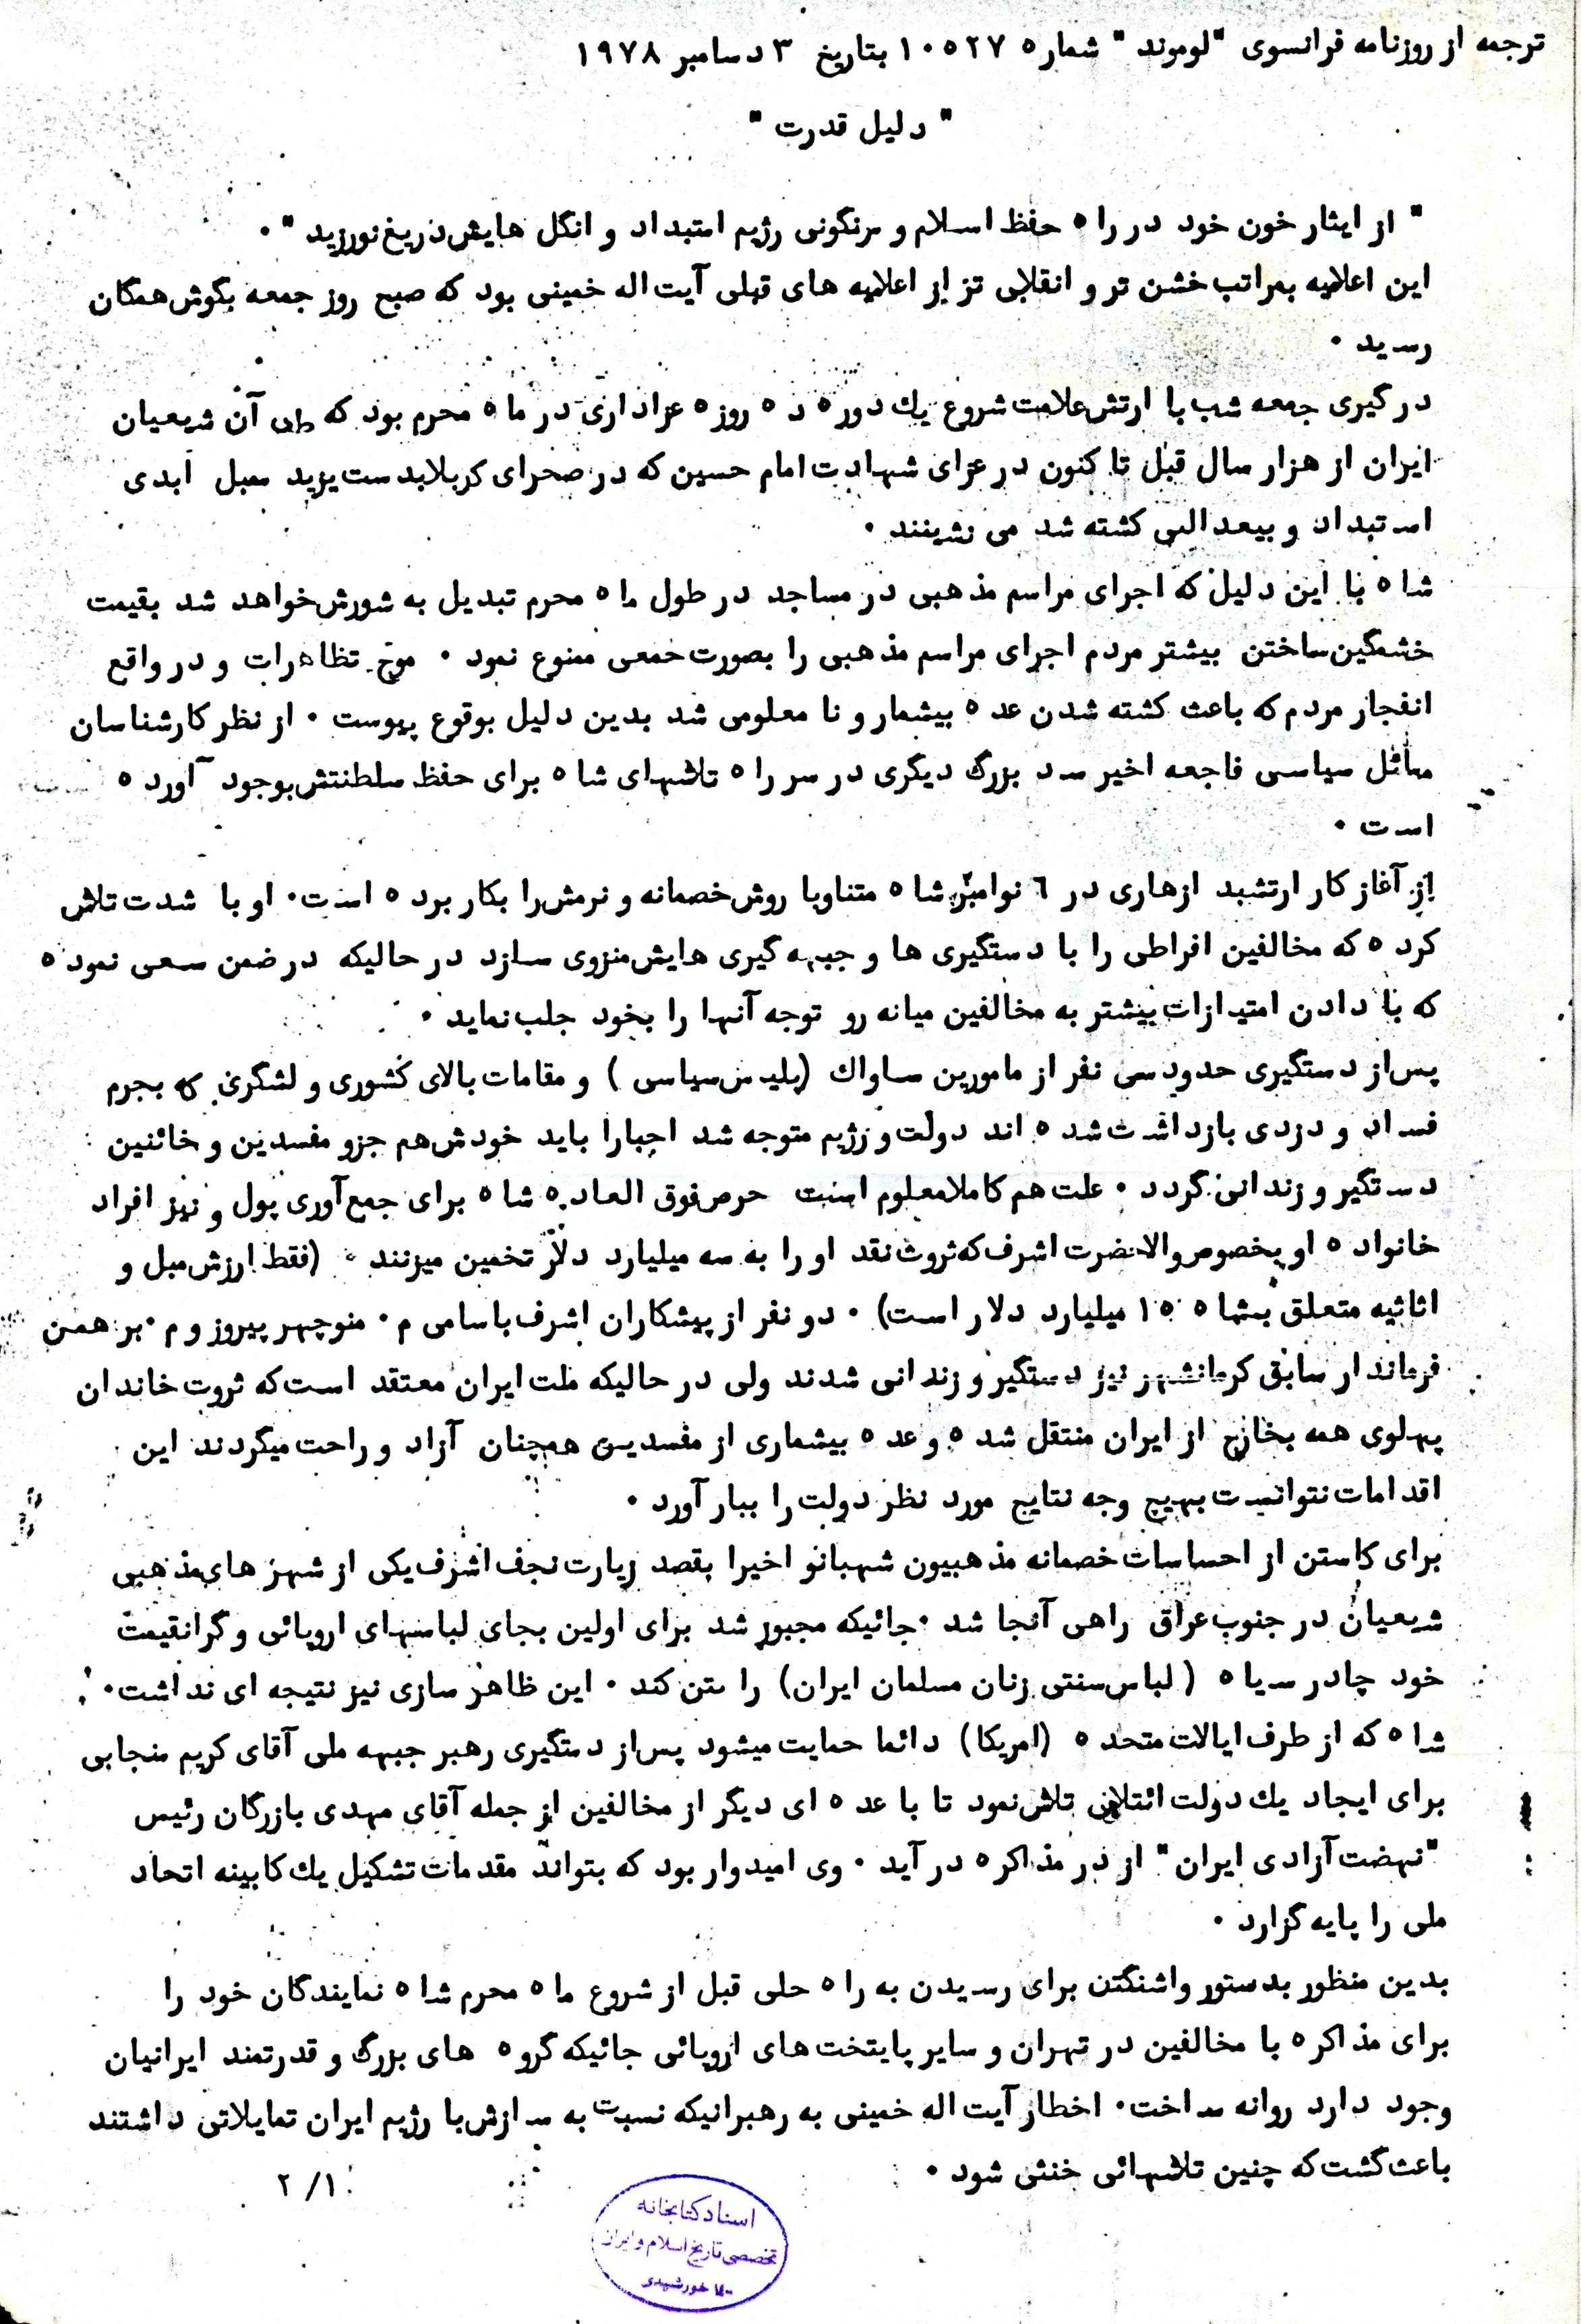 ترجمه از روزنامه فرانسوی "لوموند" شماره ۱۰۵۲۷ بتاریخ ۳ دسامبر ۱۹۷۸
" دلیل قدرت "
" از ایثار خون خود در راه حفظ اسلام و سرنگونی رژیم استبداد و انگل هایش دریغ نورزید " .
این اعلامیه بمراتب خشن تر و انقلابی تر از اعلامیه های قبلی آیت اله خمینی بود که صبح روز جمعه بگوش همگان
رسید .
درگیری جمعه شب با ارتش علامت شروع یك دوره ده روزه عزاداری در ماه محرم بود که طی آن شیعیان
ایران از هزار سال قبل تا کنون در عزای شهادت امام حسین که در صحرای کربلا بدست یزید سمبل ابدی
استبداد و بیعدالتی کشته شد می نشینند .
شاه با این دلیل که اجرای مراسم مذهبی در مساجد در طول ماه محرم تبدیل به شورش خواهد شد بقیمت
خشمگین ساختن بیشتر مردم اجرای مراسم مذهبی را بصورت جمعی ممنوع نمود . موج تظاهرات و در واقع
انفجار مردم که باعث کشته شدن عده بیشمار و نا معلومی شد بدین دلیل بوقوع پیوست . از نظر کارشناسان
مسائل سیاسی فاجعه اخیر سد بزرگ دیگری در سر راه تلاشهای شاه برای حفظ سلطنتش بوجود آورده
است .
از آغاز کار ارتشبد ازهاری در ٦ نوامبر شاه متناوبا روش خصمانه و نرمش را بکار برده است . او با شدت تلاش
کرده که مخالفین افراطی را با دستگیری ها و جبهه گیری هایش منزوی سازد در حالیکه در ضمن سعی نموده
که با دادن امتیازات بیشتر به مخالفین میانه رو توجه آنها را بخود جلب نماید .
پس از دستگیری حدود سی نفر از مامورین ساواك (پلیس سیاسی ) و مقامات بالای کشوری و لشگری که بجرم
فساد و دزدی بازداشت شده اند دولت و رژیم متوجه شد اجبارا باید خودش هم جزو مفسدین و خائنین
دستگیر و زندانی گردد . علت هم کاملا معلوم است حرص فوق العاده شاه برای جمع آوری پول و نیز افراد
خانواده او بخصوص والاحضرت اشرف که ثروت نقد او را به سه میلیارد دلار تخمین میزنند . (فقط ارزش مبل و
اثاثیه متعلق بشاه ۱۵ میلیارد دلار است) . دو نفر از پیشکاران اشرف باسامی م . منوچهر پیروز و م . برهمن
فرماندار سابق کرمانشهر نیز دستگیر و زندانی شدند ولی در حالیکه ملت ایران معتقد است که ثروت خاندان
پهلوی همه بخارج از ایران منتقل شده و عده بیشماری از مفسدین همچنان آزاد و راحت میگردند این
اقدامات نتوانست بهیچ وجه نتایج مورد نظر دولت را ببار آورد .
برای کاستن از احساسات خصمانه مذهبیون شهبانو اخیرا بقصد زیارت نجف اشرف یکی از شهر های مذهبی
شیعیان در جنوب عراق راهی آنجا شد . جائیکه مجبور شد برای اولین بجای لباسهای اروپائی و گرانقیمت
خود چادر سیاه ( لباس سنتی زنان مسلمان ایران) را بتن کند . این ظاهر سازی نیز نتیجه ای نداشت .
شاه که از طرف ایالات متحده (امریکا) دائما حمایت میشود پس از دستگیری رهبر جبهه ملی آقای کریم سنجابی
برای ایجاد یك دولت ائتلافی تلاش نمود تا با عده ای دیگر از مخالفین از جمله آقای مهدی بازرگان رئیس
"نهضت آزادی ایران" از در مذاکره در آید . وی امیدوار بود که بتواند مقدمات تشکیل یك کابینه اتحاد
ملی را پایه گزارد .
بدین منظور بدستور واشنگتن برای رسیدن به راه حلی قبل از شروع ماه محرم شاه نمایندگان خود را
برای مذاکره با مخالفین در تهران و سایر پایتخت های اروپائی جائیکه گروه های بزرگ و قدرتمند ایرانیان
وجود دارد روانه ساخت . اخطار آیت اله خمینی به رهبرانیکه نسبت به سازش با رژیم ایران تمایلاتی داشتند
باعث گشت که چنین تلاشهائی خنثی شود .
۲/۱۰
اسناد کتابخانه
تخصصی تاریخ اسلام و ایران
خورشیدی